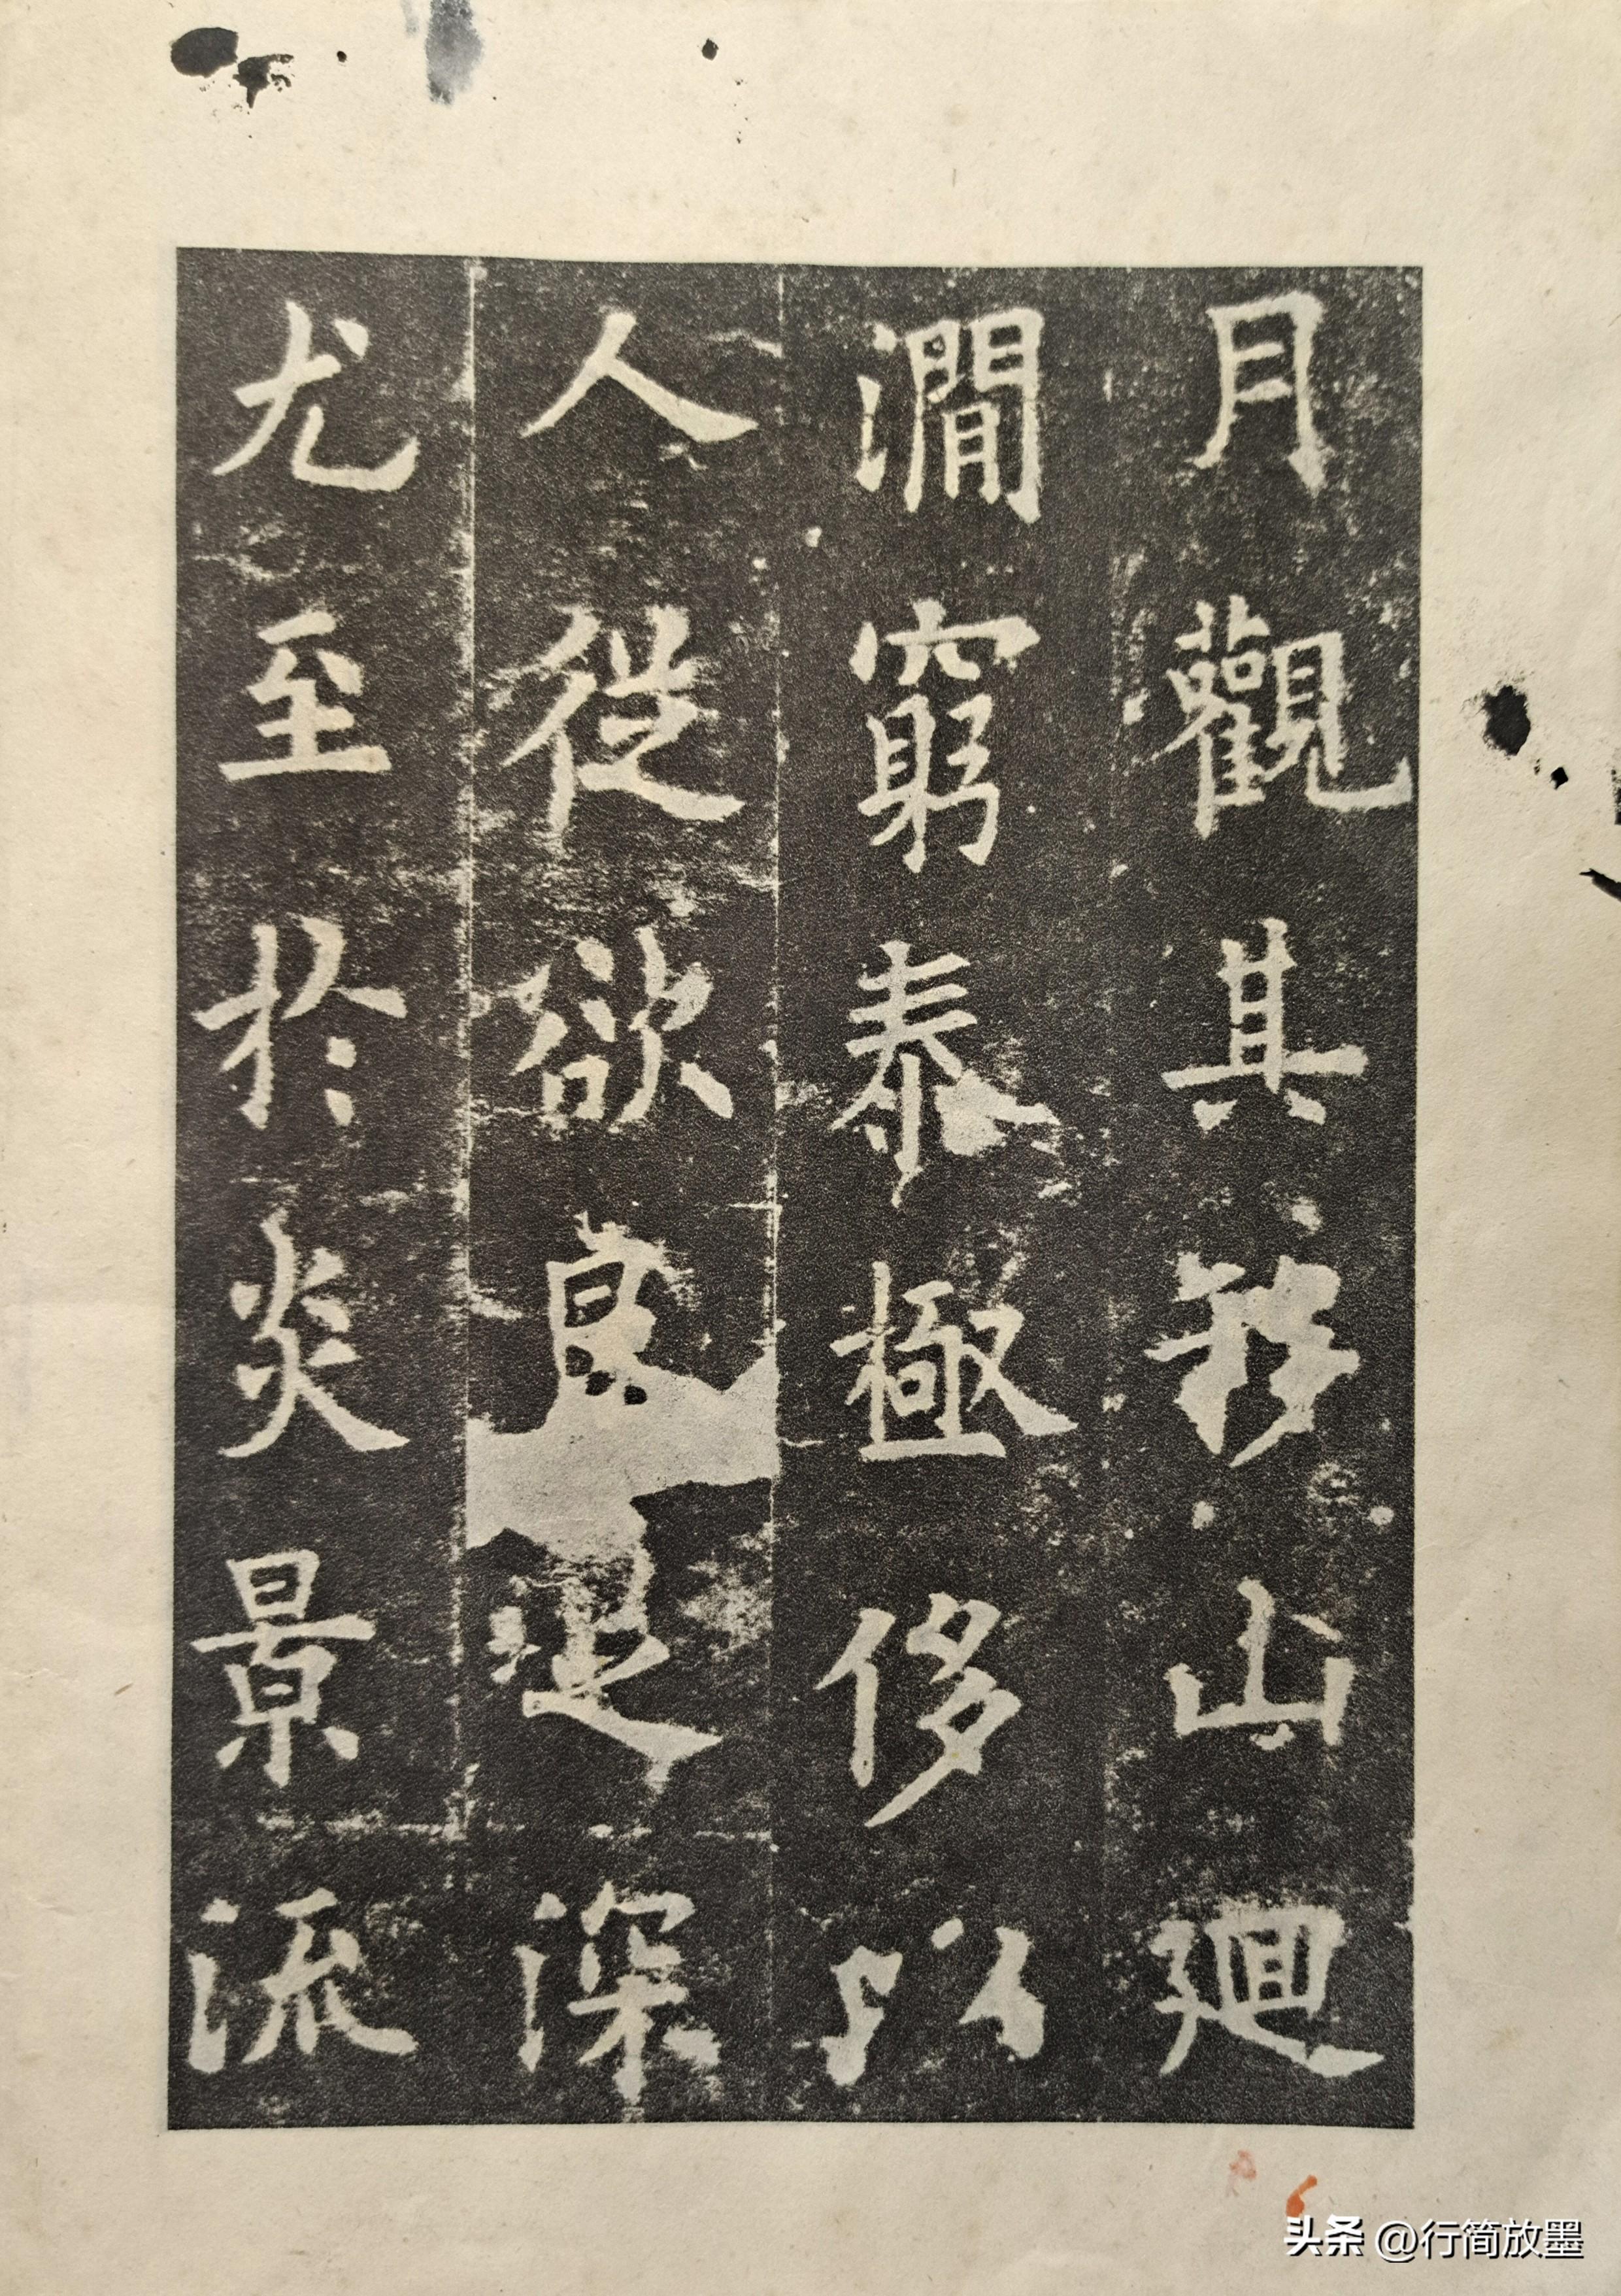 月觀其移山廻
澗窮泰極侈以
人從欲良足深
尤至於炎景流
头条 @行简放墨